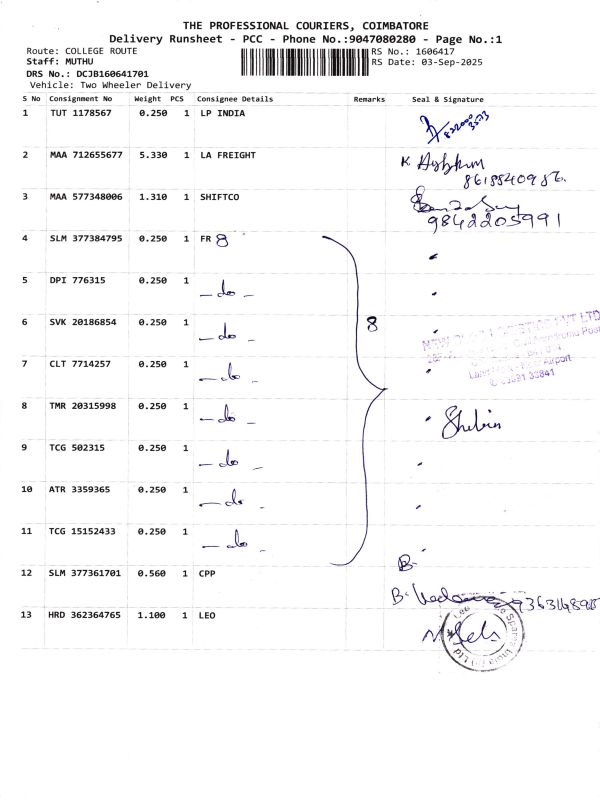 THE PROFESSIONAL COURIERS, COIMBATORE
Delivery Runsheet - PCC - Phone No.:9047080280 - Page No.:1
Route: COLLEGE ROUTE RS No.: 1606417
Staff: MUTHU RS Date: 03-Sep-2025
DRS No.: DCJB160641701
Vehicle: Two Wheeler Delivery
S No Consignment No Weight PCS Consignee Details Remarks Seal & Signature
1 TUT 1178567 0.250 1 LP INDIA
2 MAA 712655677 5.330 1 LA FREIGHT
8618840986.
3 MAA 577348006 1.310 1 SHIFTCO
9842205991
4 SLM 377384795 0.250 1 FR 8
5 DPI 776315 0.250 1
- do -
6 SVK 20186854 0.250 1 8
- do -
7 CLT 7714257 0.250 1
- do -
8 TMR 20315998 0.250 1 Shebin
- do -
9 TCG 502315 0.250 1
- do -
10 ATR 3359365 0.250 1
- do -
11 TCG 15152433 0.250 1
- do -
B-
12 SLM 377361701 0.560 1 CPP
13 HRD 362364765 1.100 1 LEO